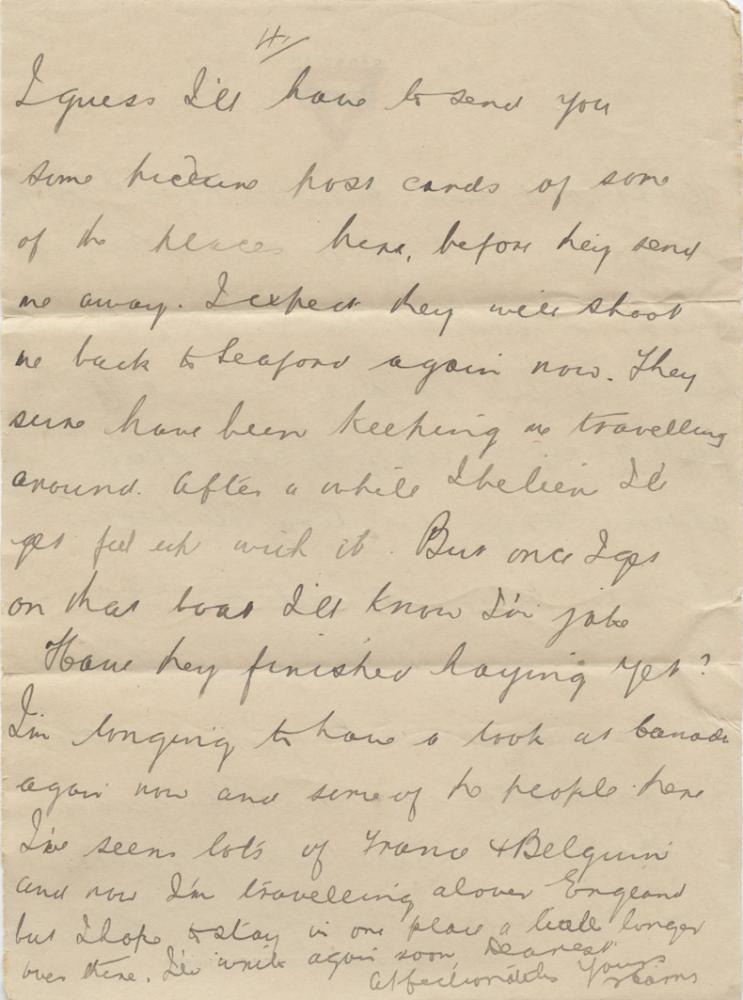 4/
I guess I'll have to send you
some picture post cards of some
of the places here, before they send
me away. I expect they will shoot
me back to Seaford again now. They
sure have been keeping me travelling
around. After a while I believe I'll
get fed up with it. But once I get
on that boat I'll know I'm jake
Have they finished haying yet?
I'm longing to have a look at Canada
again now and some of the people there
I've seen lots of France & Belguim
and now I'm travelleing alover England
but I hope to stay in one place a little longer
over there. I'll write again soon, Dearest
Affectionately Yours